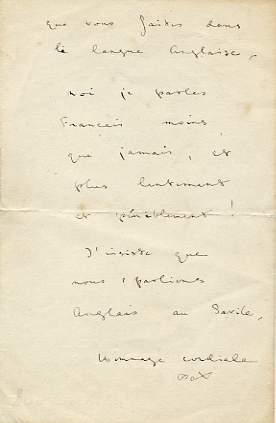 que vous faites dans
la langue Anglaise,
moi je parles
Francais moins
que jamais, et
plus lentement
et péniblement !
J'insiste que
nous parlions
Anglais au Savile,
Hommage cordiale